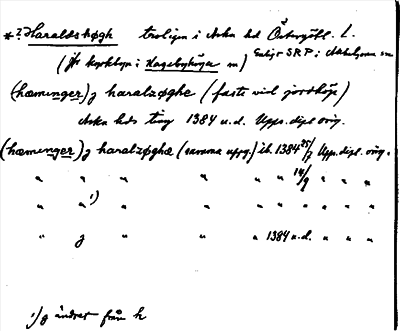 *? Haraldshøgh troligen i Aska hd Östergötl. l.
Enligt S.R.P. i
(jfr kyrkbyn i Hagebyhöga sn)
(hæminger) j haralzøghe (faste vid jordköp)
Aska hds ting 1384 u.d. Upps. dipl orig.
(hæminger) j haralzøghæ (samma uppg.) ib. 1384 25/7 Upps. dipl. orig.
" " " " " " 14/9 " " "
" " 1) " " " " " " "
" j " " " 1384 u.d. " " "
1) j ändrat från h